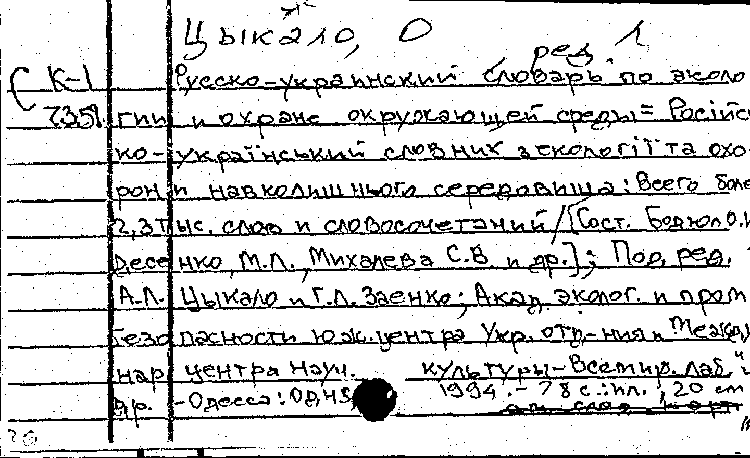 Цыкало, О
ред. 1
К-1 Русско-украинский словарь по эколо
7351 гии и охране окружающей среды = Російсь
ко-український словник з екології та охо
рони навколишнього середовища: Всего боле
2,3 тыс. слов и словосочетаний / [Сост. Бодюл О.И
Десенко, М.Л. Михалева С.В. и др.]; Под. ред.
А.Л. Цыкало и Г.Л. Заенко; Акад. эколог. и пром
безопасности юж. центра Укр. отд-ния "Межд
нар центра науч. культуры - Всемир. лаб." и
др. - Одесса: 1994. - 78 с.: ил.; 20 см
20